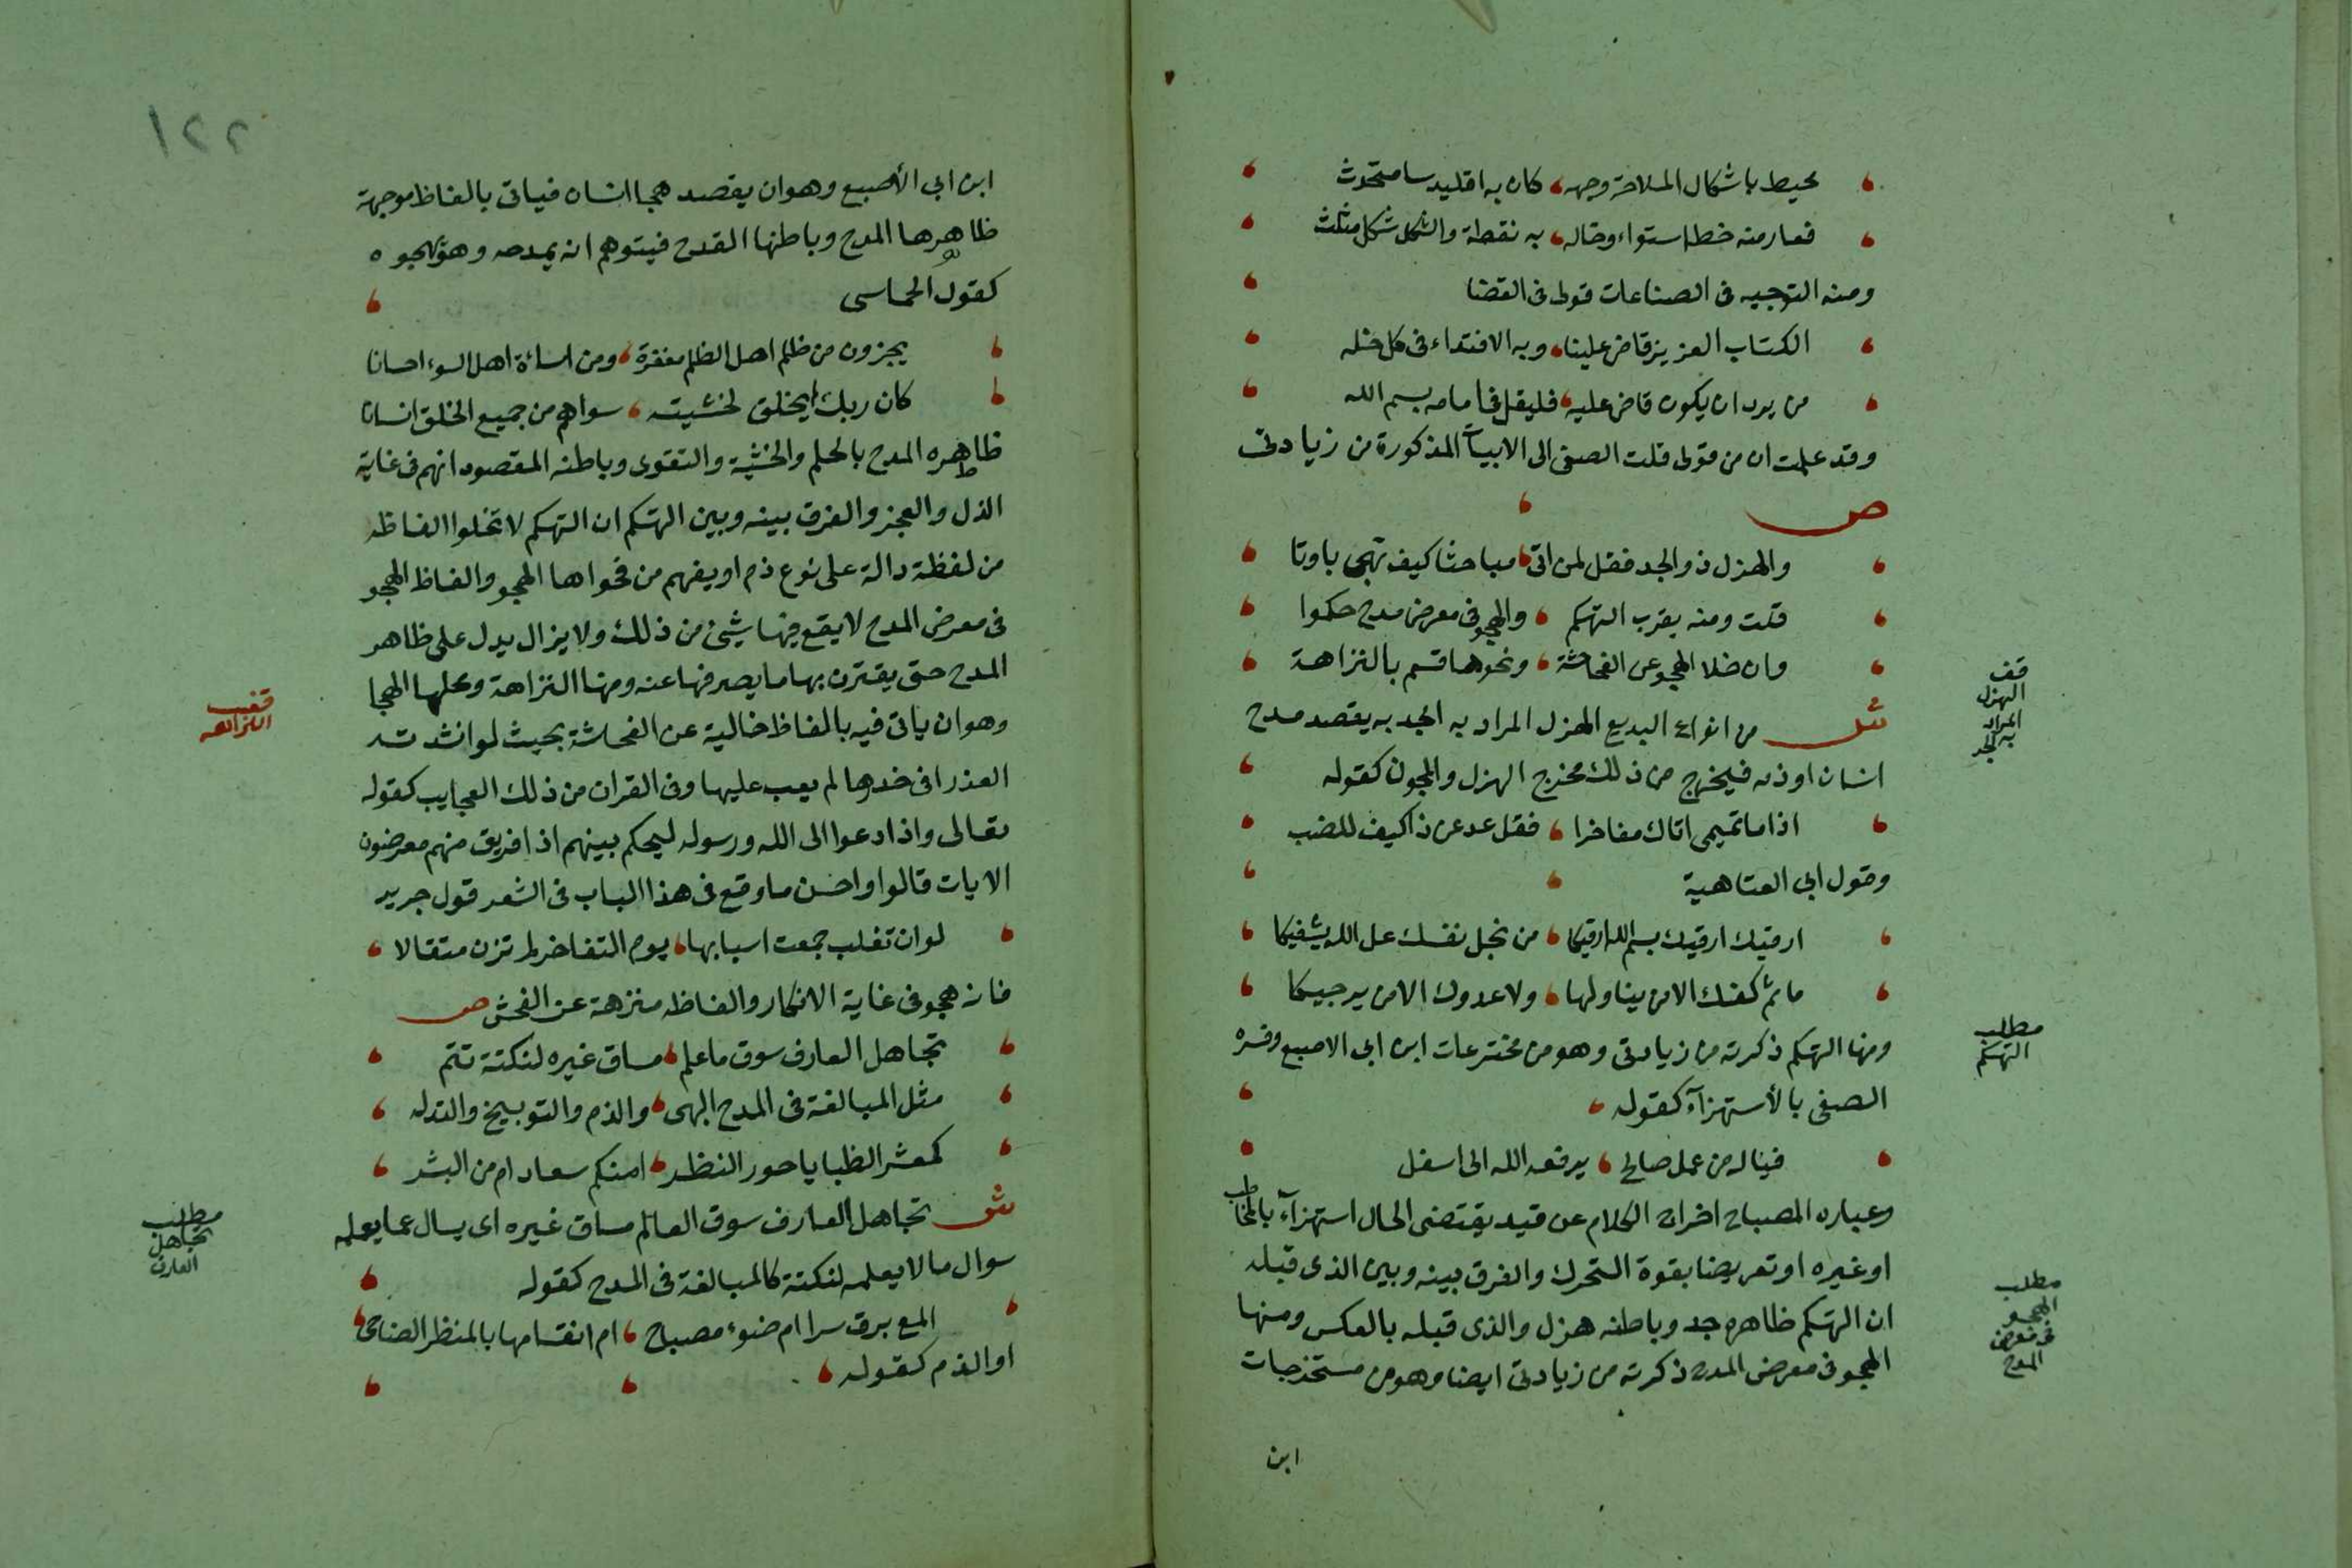 يحيط باشكال الملاحة وجهه كان به اقليدسا متحدث
فعارضه خط استواء وخاله به نقطة والشكل شكل مثلث
ومنه التوجيه فى الصناعات قولى فى القضا
الكتاب العزيز قاض علينا وبه الاقتداء فى كل خله
من يرد ان يكون قاض عليه فليقل فى امامه بسم الله
وقد علمت ان من قولى قلت الصفى الى الابيات المذكورة من زيادتى
ص
والهزل ذو الجد فقل لمن اتى مباحثا كيف تهجى باوتا
قلت ومنه يقرب التهكم والهجو فى معرض مدح حكموا
وان خلا الهجو عن الفحاشة ونحوها قسم بالنزاهة
ش من انواع البديع الهزل المراد به الجد به يقصد مدح
انسان او ذمه فيخرج من ذلك مخرج الهزل والمجون كقوله
اذا ما تميمى اتاك مفاخرا فقل عد عن ذا كيف للضب
وقول ابى العتاهية
ارقيك ارقيك بسم الله ارقيكا من بخل نفسك عل الله يشفيكا
ما تم كفك الا من يناولها ولا عدوك الا من يرجيكا
ومنها التهكم ذكرته من زيادتى وهو من مخترعات ابن ابى الاصبع وفسره
الصفى بالأستهزآء كقوله
فيناله من عمل صالح يرفعه الله الى اسفل
وعباره المصباح اخراج الكلام عن قيد يقتضى الحال استهزآء بالمخاطب
او غيره او تعريضا بقوة التحرك والفرق بينه وبين الذى قبله
ان التهكم ظاهره جد وباطنه هزل والذى قبله بالعكس ومنها
الهجو فى معرض المدح ذكرته من زيادتى ايضا وهو من مستخرجات
ابن
قف
الهزل
المراد
به الجد
مطلب
التهكم
مطلب
الهجو
فى معرض
المدح
١٢٢
ابن ابى الأصبع وهو ان يقصد هجا انسان فياتى بالفاظ موجهة
ظاهرها المدح وباطنها القدح فيتوهم انه يمدحه وهو يهجوه
كقول الحماسى
يجزون من ظلم اهل الظلم مغفرة ومن اساءة اهل السوء احسانا
كان ربك لم يخلق لخشيته سواهم من جميع الخلق انسانا
ظاهره المدح بالحلم والخشية والتقوى وباطنه المقصود انهم فى غاية
الذل والعجز والفرق بينه وبين التهكم ان التهكم لا تخلوا الفاظه
من لفظة دالة على نوع ذم او يفهم من فحواها الهجو والفاظ الهجو
فى معرض المدح لا يقع فيها شيئ من ذلك ولا يزال يدل على ظاهر
المدح حتى يقترن بها ما يصرفها عنه ومنها النزاهة ومحلها الهجا
وهو ان ياتى فيه بالفاظ خالية عن الفحاشة بحيث لو انشدته
العذرا فى خدرها لم يعب عليها وفى القران من ذلك العجايب كقوله
تعالى واذا دعوا الى الله ورسوله ليحكم بينهم اذا فريق منهم معرضون
الايات قالوا واحسن ما وقع فى هذا الباب فى الشعر قول جرير
لو ان تغلب جمعت احسابها يوم التفاخر لم تزن مثقالا
فانه هجو فى غاية الانكار والفاظه منزهة عن الفحش ص
تجاهل العارف سوق ما علم مساق غيره لنكتة تتم
مثل المبالغة فى المدح البهى والذم والتوبيخ والتدله
كمعشر الظبا يا حور النظر امنكم سعاد ام من البشر
ش تجاهل العارف سوق العالم مساق غيره اى يسال عما يعلمه
سوال ما لا يعلمه لنكتة كالمبالغة فى المدح كقوله
المع برق سرا ام ضوء مصباح ام ابتسامها بالمنظر الضاحى
او الذم كقوله
قف
النزاهه
مطلب
تجاهل
العارف